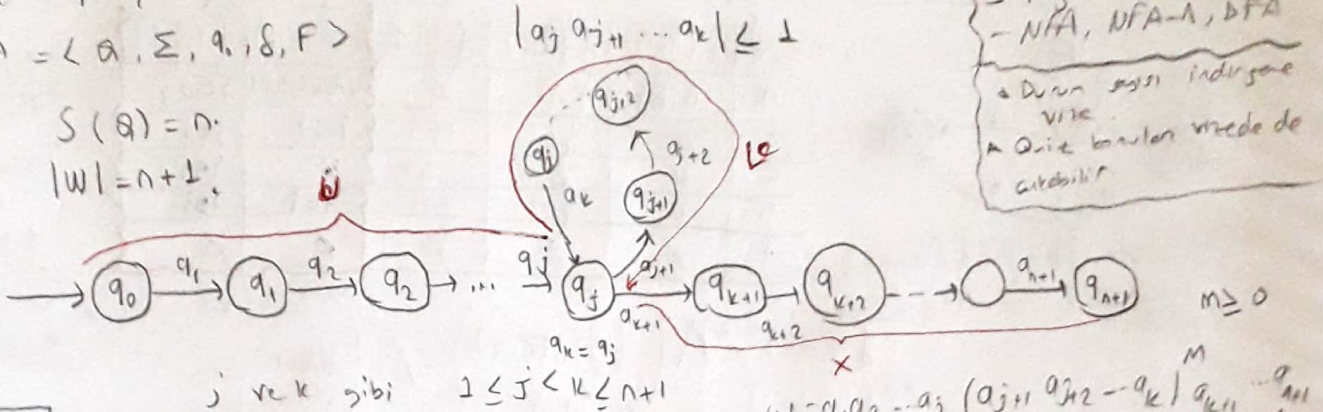 = < Q, Σ, q₀, δ, F >
|aj aj+1 ... ak| ≤ 1
- NFA, NFA-Λ, DFA
S(Q) = n.
|W| = n+1.
Durum sayısı indirgeme
vize
Quiz konuları vizede de
çıkabilir
qj+2
qj
aj+2
ak
qj+1
q₀ a₁ q₁ a₂ q₂ ... aj qj aj+1 qk+1 qk+2 an+1 qn+1
ak+1 ak+2
m ≥ 0
qk = qj
x
j ve k gibi 1 ≤ j < k ≤ n+1
a₁a₂...aj (aj+1 aj+2 ... ak)ᴹ ak+1 ... an+1